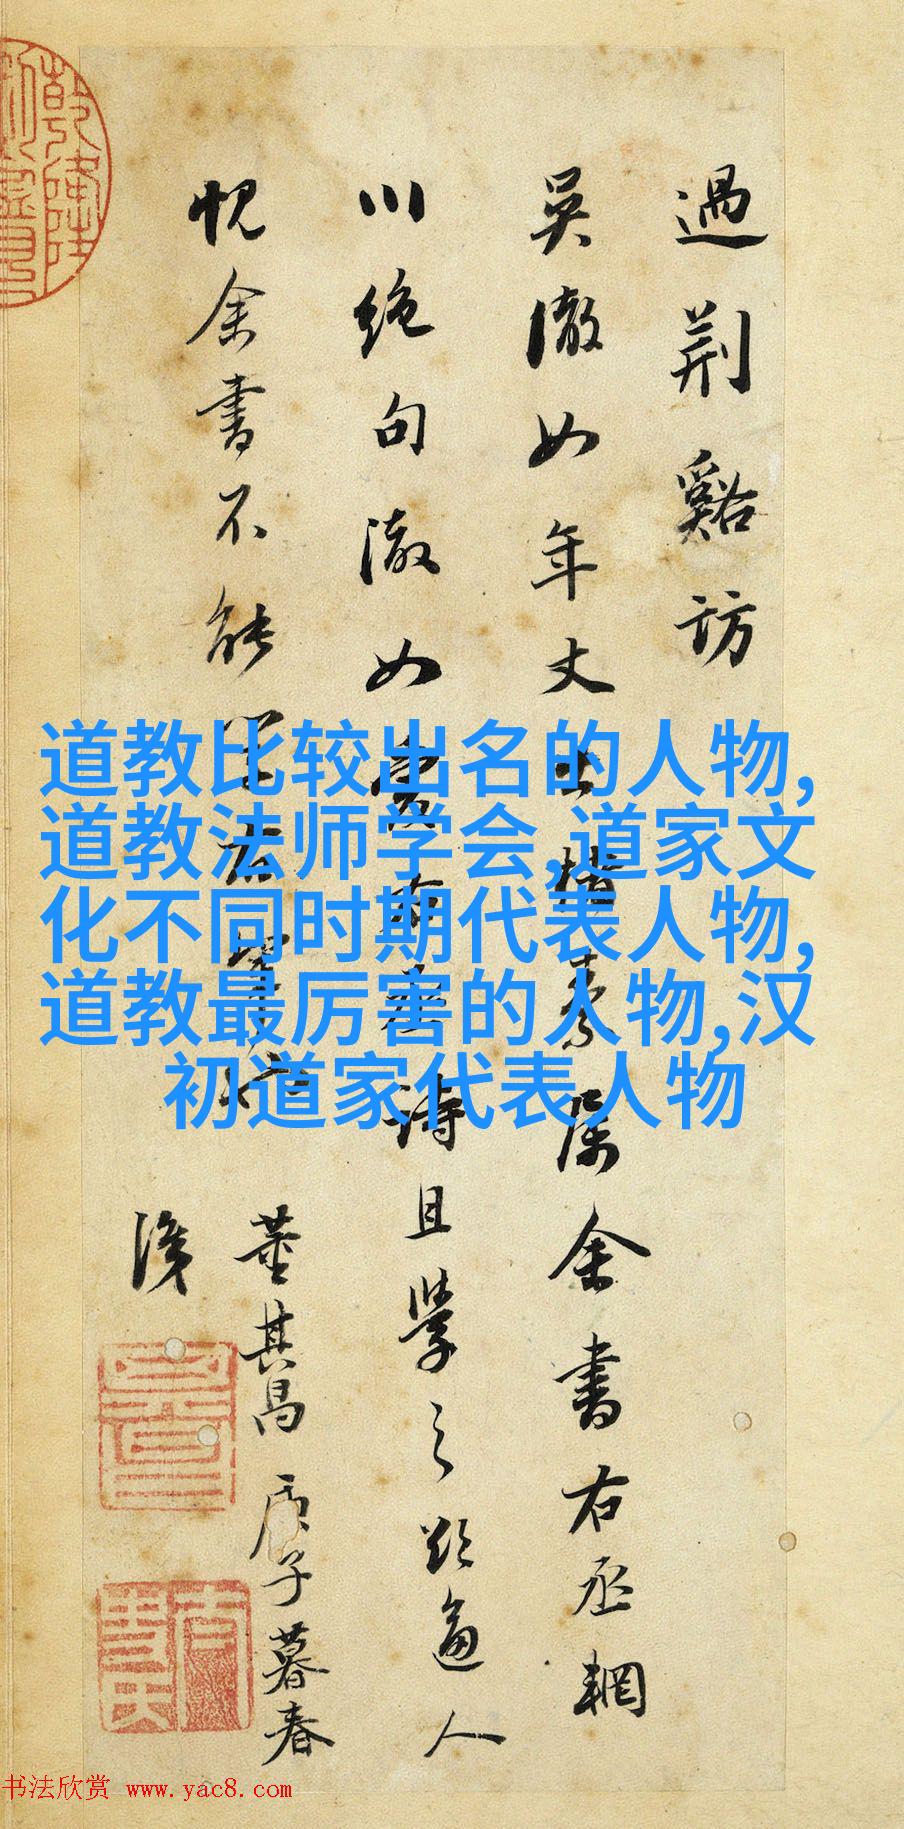 過荆谿訪
吴澈如年丈出楮素属余書右丞輞
川絶句澈如
詩且學之欲逼人
愧余書不能
董其昌庚子暮春
後
道教比较出名的人物,
道教法师学会,道家文
化不同时期代表人物,
道教最厉害的人物,汉
初道家代表人物
书法欣赏 www.yac8.com